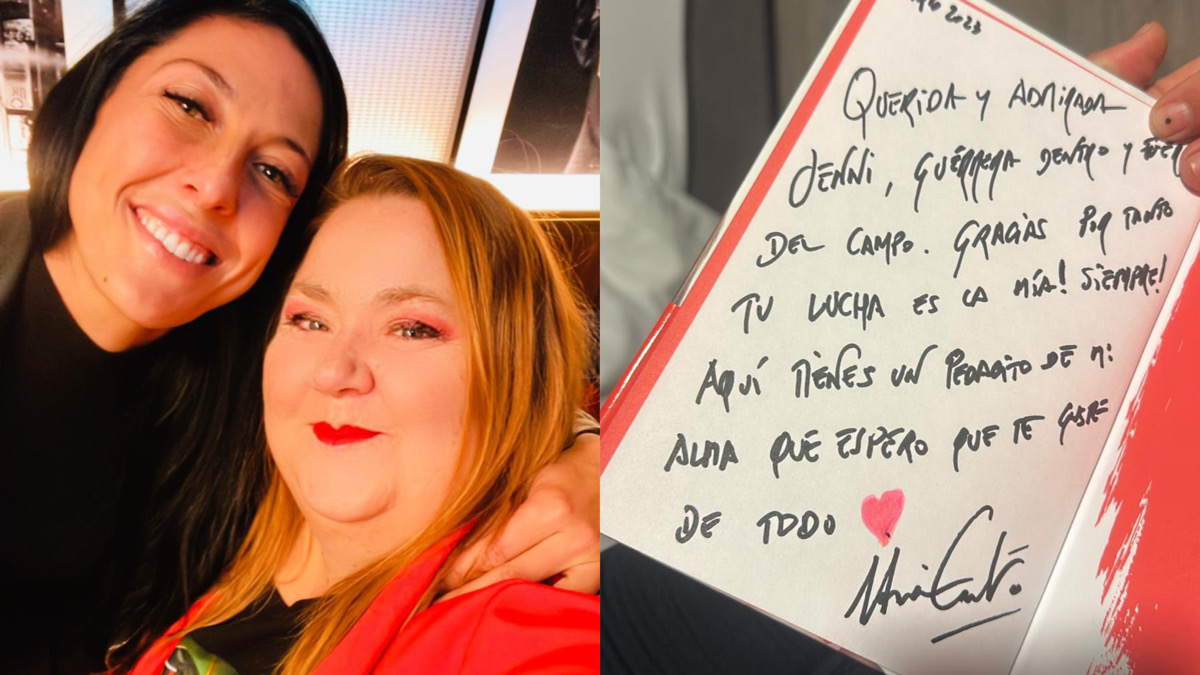 2023
QUERIDA Y ADMIRADA
JENNI, GUERRERA DENTRO Y
DEL CAMPO. GRACIAS POR TANTO
TU LUCHA ES LA MÍA! SIEMPRE!
AQUÍ TIENES UN PEDACITO DE MI
ALMA QUE ESPERO QUE TE GUSTE
DE TODO